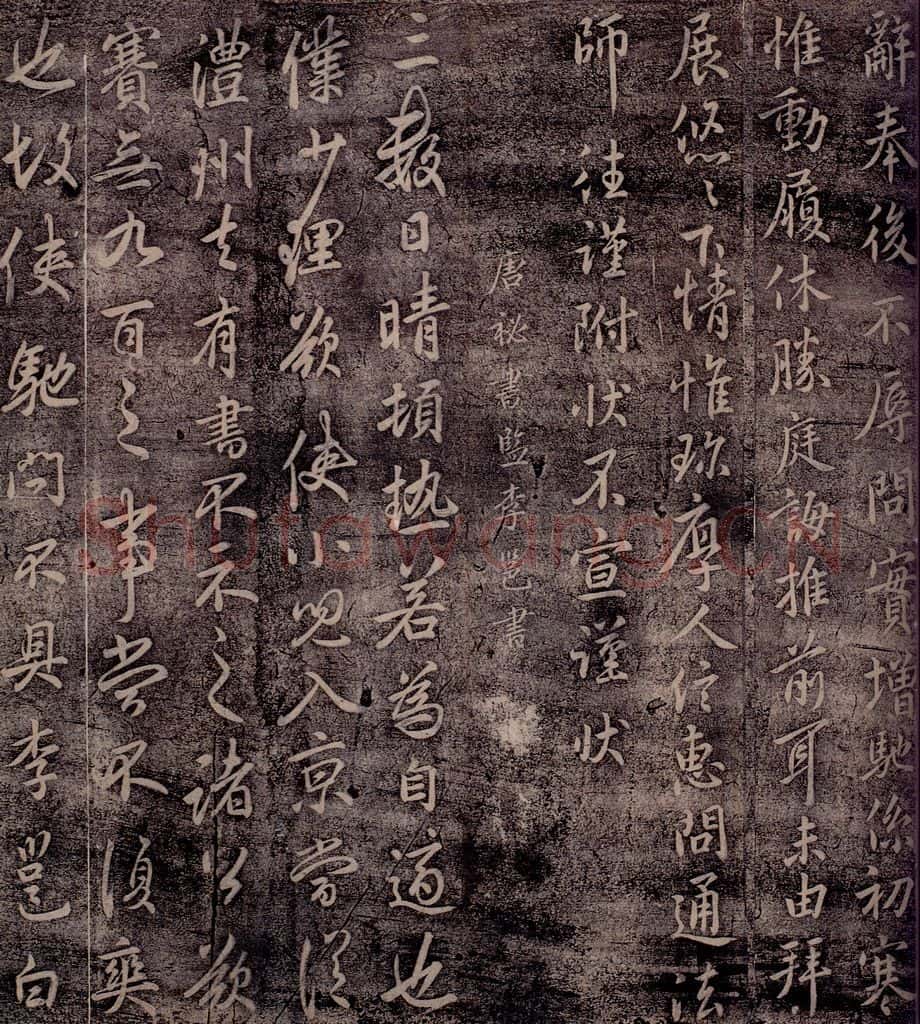 辭奉後不辱問實增馳係初寒
惟動履休勝庭誨推前耳未由拜
展悠〻下情惟珎厚人信惠問通法
師徃謹附状不宣謹状
唐祕書監李邕書
三數日晴頓熱若為自適也
僕少理欲使小兒入京當從
澧州去有書不示之諸公欲
賽無九百之事當不須奭
也故使馳問不具李邕白
Shufawang.CN